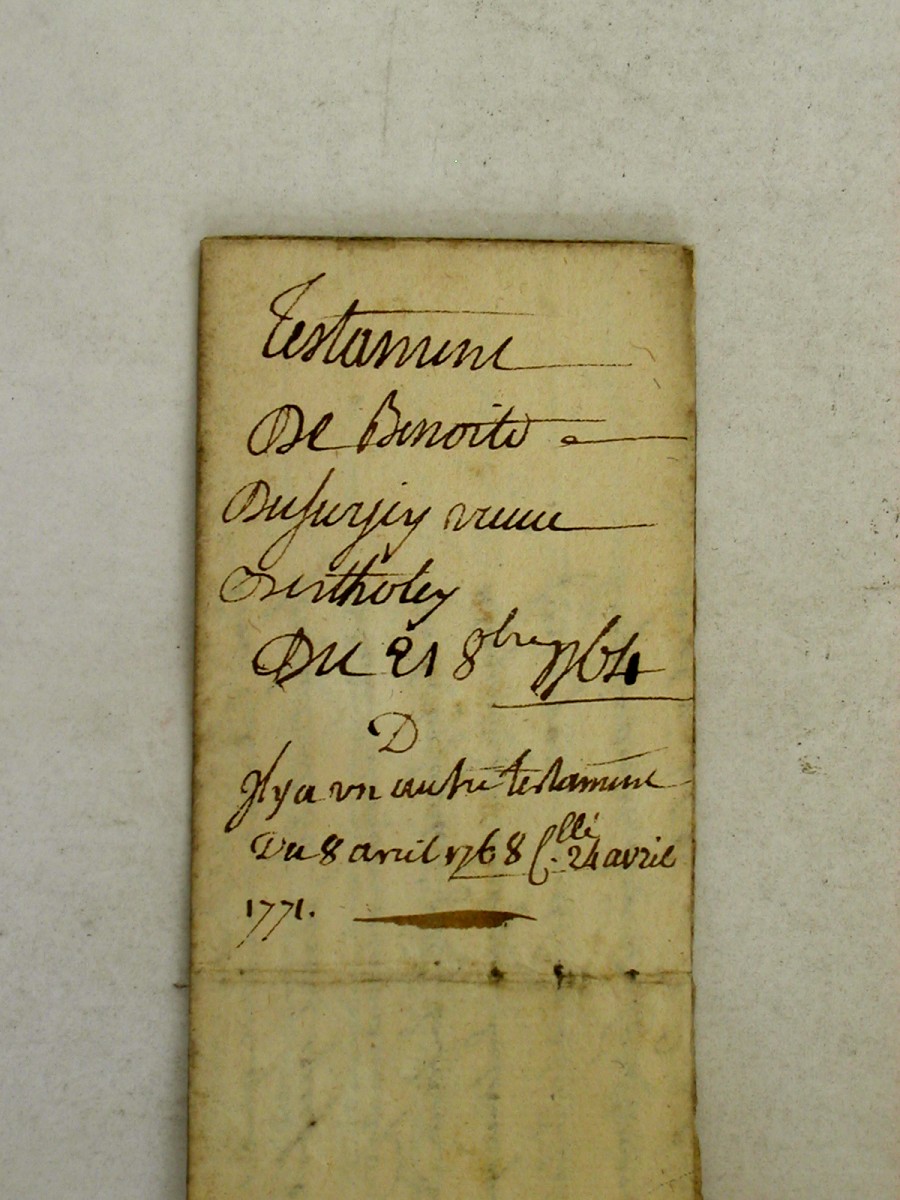 Testament
De Benoite
Dusurjey veuue
Bertholey
Du 21 8bre 1764
D
Il y a vn autre testament
Du 8 avril 1768 C.llé 24 avril
1771.